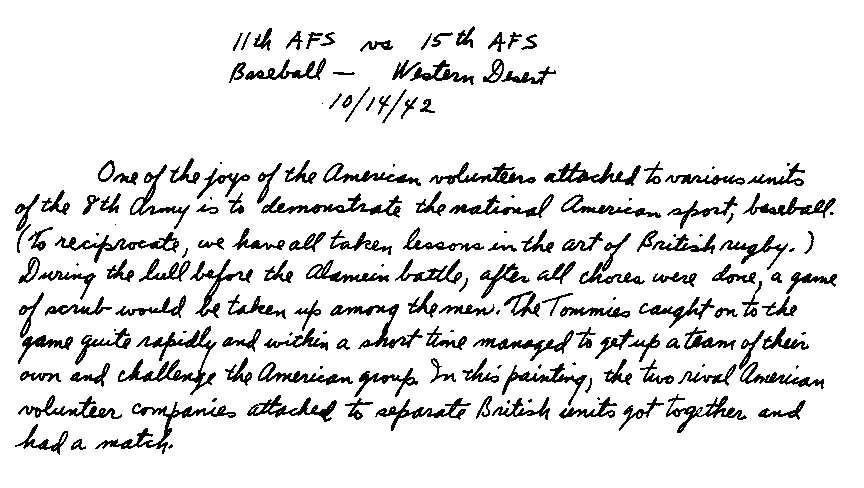 11th AFS vs 15th AFS
Baseball — Western Desert
10/14/42
One of the joys of the American volunteers attached to various units
of the 8th Army is to demonstrate the national American sport, baseball.
(To reciprocate, we have all taken lessons in the art of British rugby.)
During the lull before the Alamein battle, after all chores were done, a game
of scrub would be taken up among the men. The Tommies caught on to the
game quite rapidly and within a short time managed to get up a team of their
own and challenge the American group. In this painting, the two rival American
volunteer companies attached to separate British units got together and
had a match.